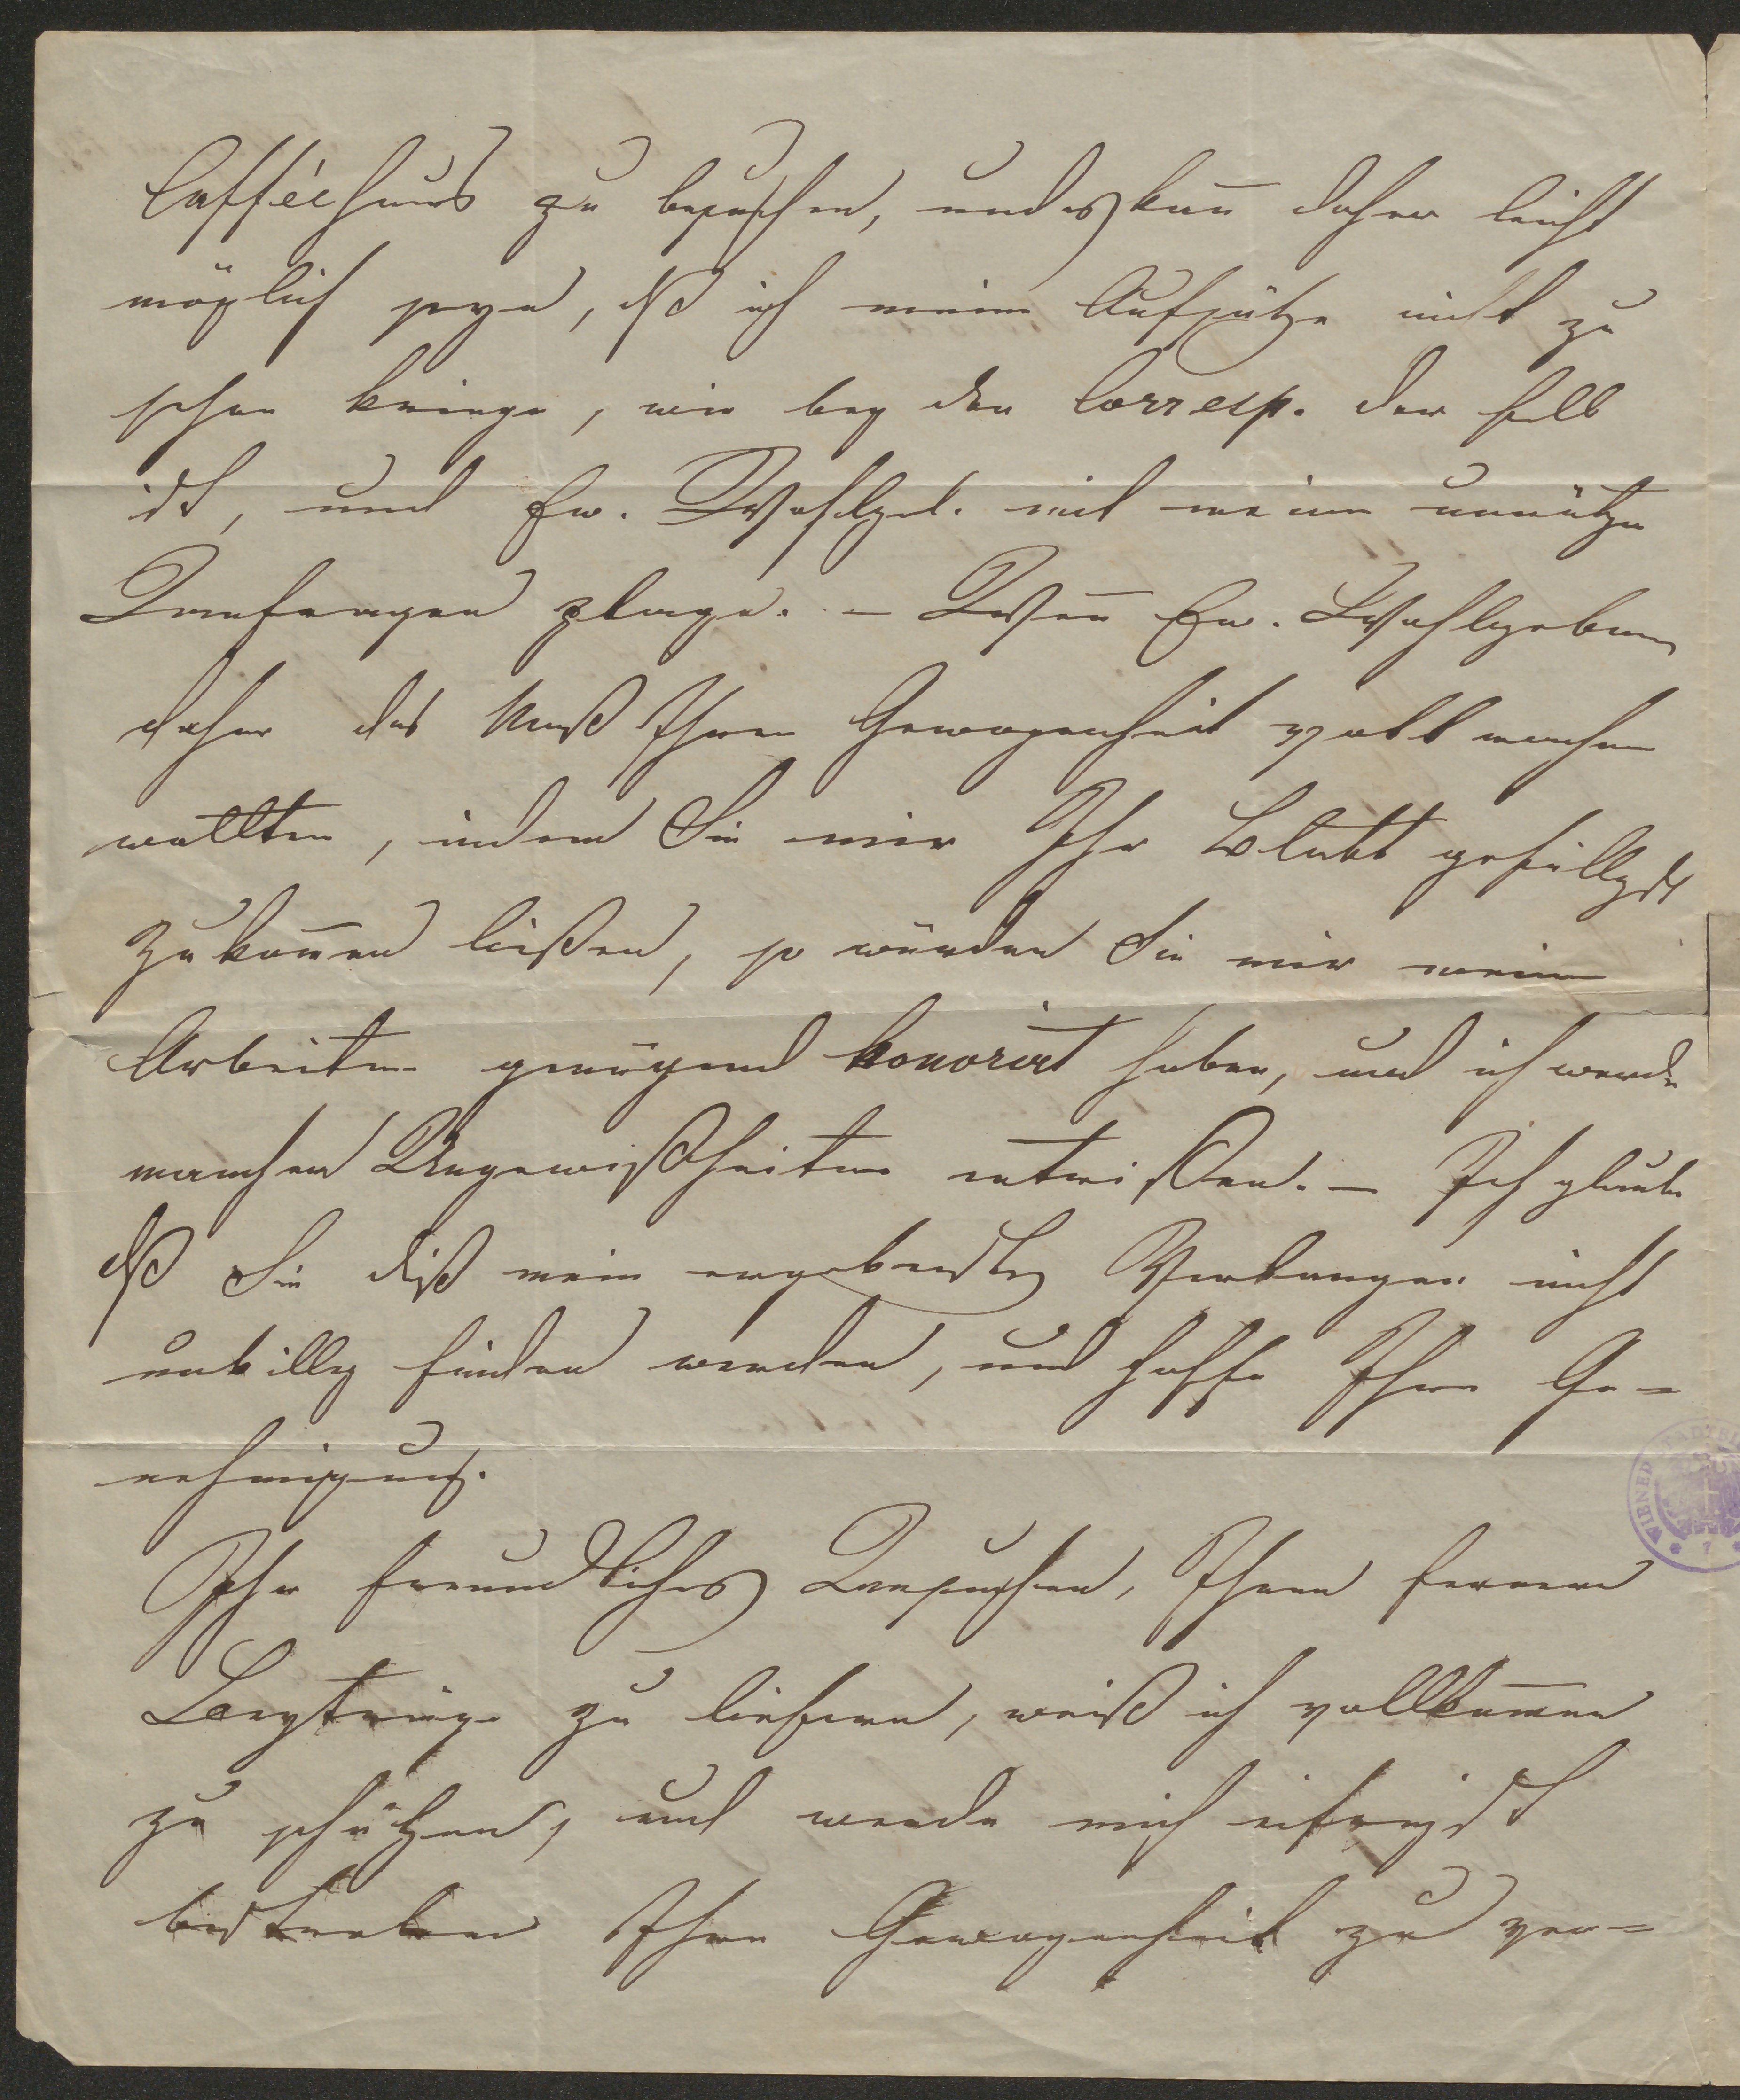 Cafféehaus zu besuchen, und es kan̅ daher leicht
möglich seyn, dß ich meine Aufsätze nicht zu
sehen kriege, wie bey den Corresp. der Fall
ist, und Ew. Wohlgeb. mit meinen unnützen
Anfragen plage. – Wen̅ Ew. Wohlgeboren
daher das Maß Ihrer Gewogenheit voll machen
wollten, indem Sie mir Ihr Blatt gefälligst
zukom̅en ließen, so würden Sie mir meine
Arbeiten genügend honorirt haben, und ich werde
manchen Ungewißheiten entrißen. – Ich glaube
dß Sie diß mein ergebenstes Verlangen nicht
unbillig finden werden, und hoffe Ihre Ge=
nehmigung.
Ihr freundliches Ansuchen, Ihnen fernere
Beyträge zu liefern, weiß ich vollkom̅en
zu schätzen, und werde mich eifrigst
bestreben Ihre Gewogenheit zu ver=
WIENER STADTBI
7